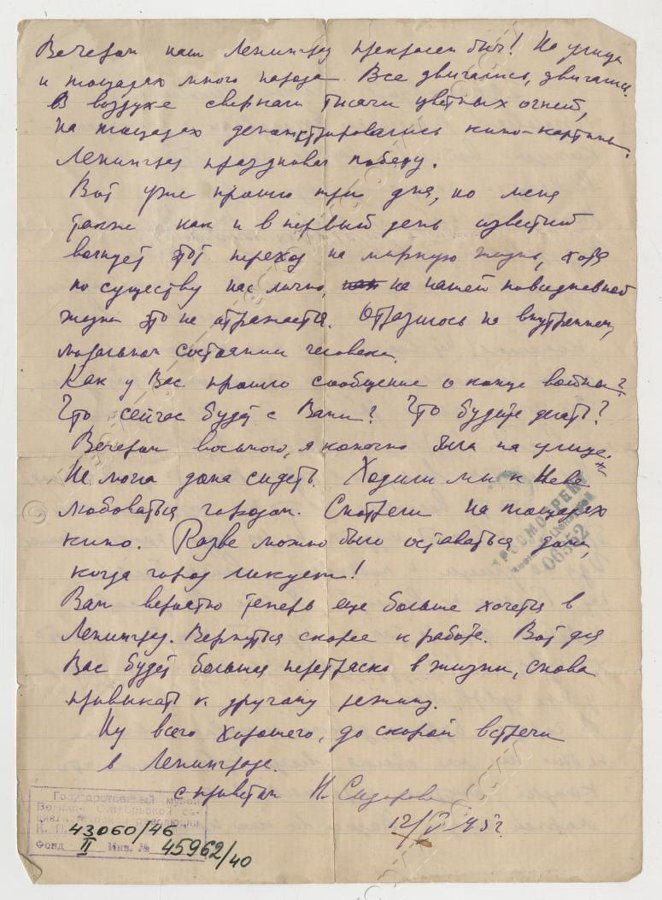 Вечером наш Ленинград прекрасен был! На улице
и площадях много народа. Все двигались, двигались.
В воздухе сверкали тысячи цветных огней,
на площадях демонстрировались кино-картины.
Ленинград праздновал победу.
Вот уже прошло три дня, но меня
также как и в первый день известий
волнует этот переход на мирную жизнь, хотя
по существу нас лично, на нашей повседневной
жизни это не отражается. Отразилось на внутреннем,
моральном состоянии человека.
Как у Вас прошло сообщение о конце войны?
Что сейчас будет с Вами? Что будете делать?
Вечером восьмого, я конечно была на улице.
Не могла дома сидеть. Ходили мы к Неве
любоваться городом. Смотрели на площадях
кино. Разве можно было оставаться дома,
когда город ликует!
Вам вероятно теперь еще больше хочется в
Ленинград. Вернуться скорее к работе. Вот для
Вас будет большая перетряска в жизни, снова
привыкать к другому режиму.
Ну всего хорошего, до скорой встречи
в Ленинграде.
с приветом Н. Сидорова
12/V 45 г.
ПРОСМОТРЕНО
06552
Государственный музей
43060/46
Фонд II Инв. № 45962/40